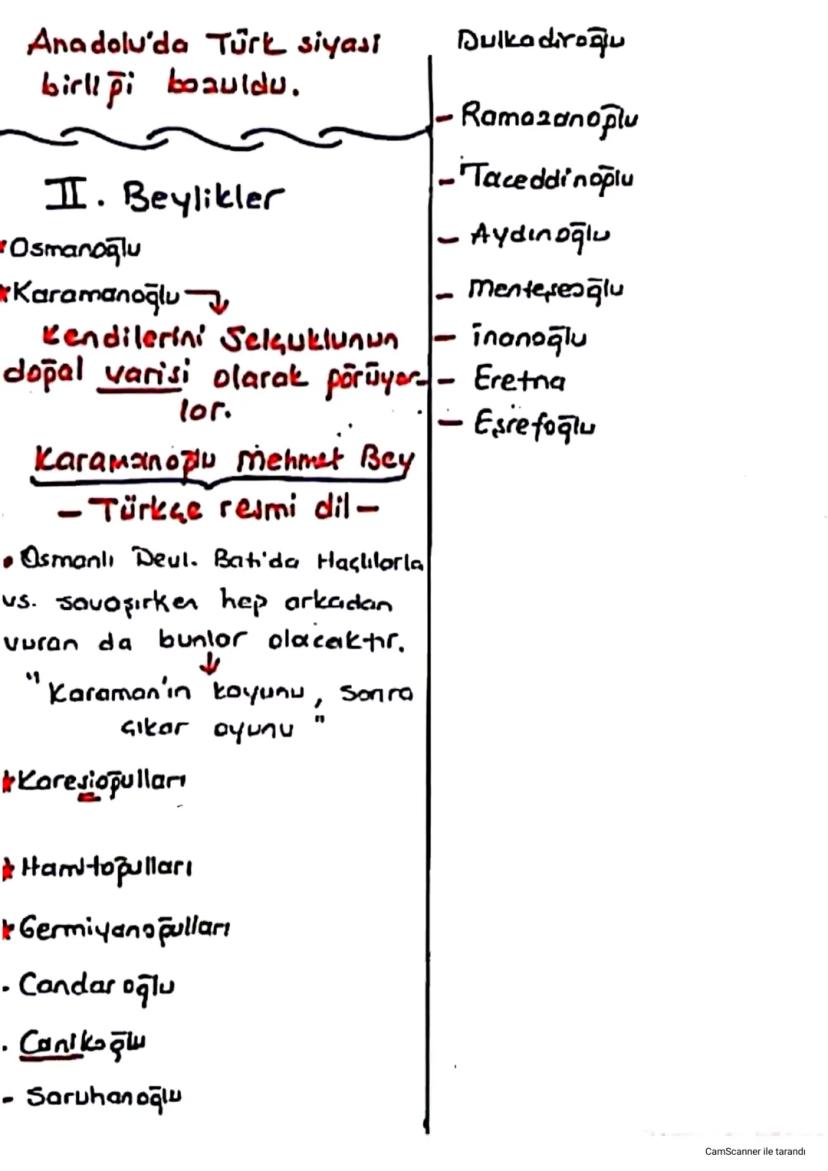 Anadolu'da Türk siyasi
birliği bozuldu.
II. Beylikler
*Osmanoğlu
*Karamanoğlu →
Kendilerini Selçuklunun
doğal varisi olarak görüyor-
lar.
Karamanoğlu Mehmet Bey
- Türkçe resmi dil -
• Osmanlı Devl. Batı'da Haçlılarla
vs. savaşırken hep arkadan
vuran da bunlar olacaktır.
↓
"Karaman'ın koyunu, sonra
çıkar oyunu"
*Karesioğulları
*Hamitoğulları
*Germiyanoğulları
. Candaroğlu
. Canikoğlu
- Saruhanoğlu
Dulkadiroğlu
- Ramazanoğlu
- Taceddinoğlu
- Aydınoğlu
- Menteşeoğlu
- İnanoğlu
- Eretna
- Eşrefoğlu
CamScanner ile tarandı